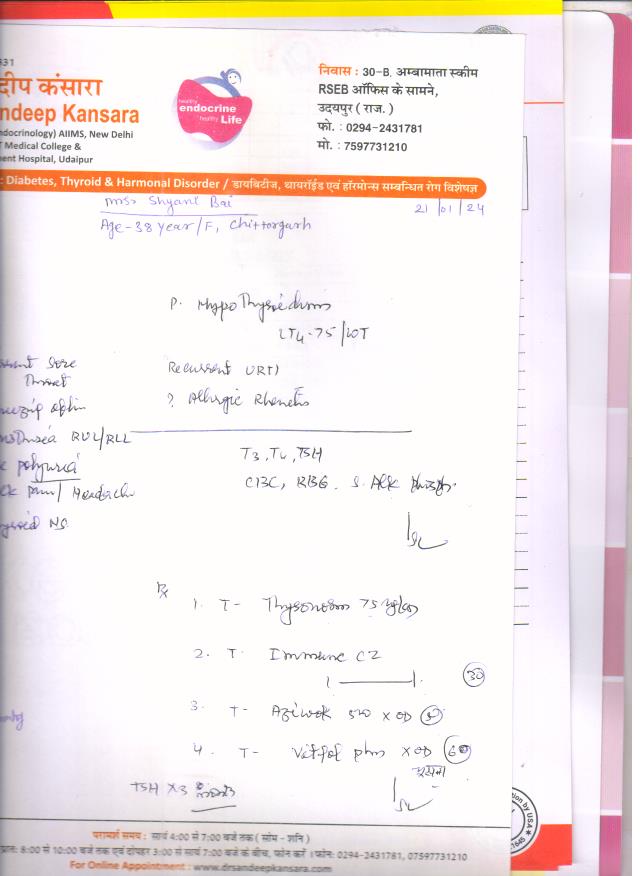 931
दीप कंसारा
ndeep Kansara
ndocrinology) AIIMS, New Delhi
T Medical College &
ment Hospital, Udaipur
healthy
endocrine
healthy Life
निवास : 30-B, अम्बामाता स्कीम
RSEB ऑफिस के सामने,
उदयपुर ( राज. )
फो. : 0294-2431781
मो. : 7597731210
: Diabetes, Thyroid & Harmonal Disorder / डायबिटीज, थायराॅईड एवं हॉरमोन्स सम्बन्धित रोग विशेषज्ञ
Shyani Bai
21/01/24
Age-38 year/F, Chittorgarh
P. Hypothyroidism
LT4-75/
Recurrent URTI
? Allergic Rhenetis
Sore
Throat
RUL/RLL
polyuria
pain/ Headache
T3, T4, TSH
CBC, RBG, S. Alk
Rx
1. T- Thyronorm 75
2. T. Immune CZ
1 1
30
3. T- Aziwok 500 X OD 5
4. T- Vitfol X OD 60
TSH X3
परामर्श समय : सायं 4:00 से 7:00 बजे तक ( सोम - शनि )
प्रात: 8:00 से 10:00 बजे तक एवं दोपहर 3:00 से सायं 7:00 बजे के बीच, फोन करें । फोन: 0294-2431781, 07597731210
For Online Appointment : www.drsandeepkansara.com
ion by USA
1645